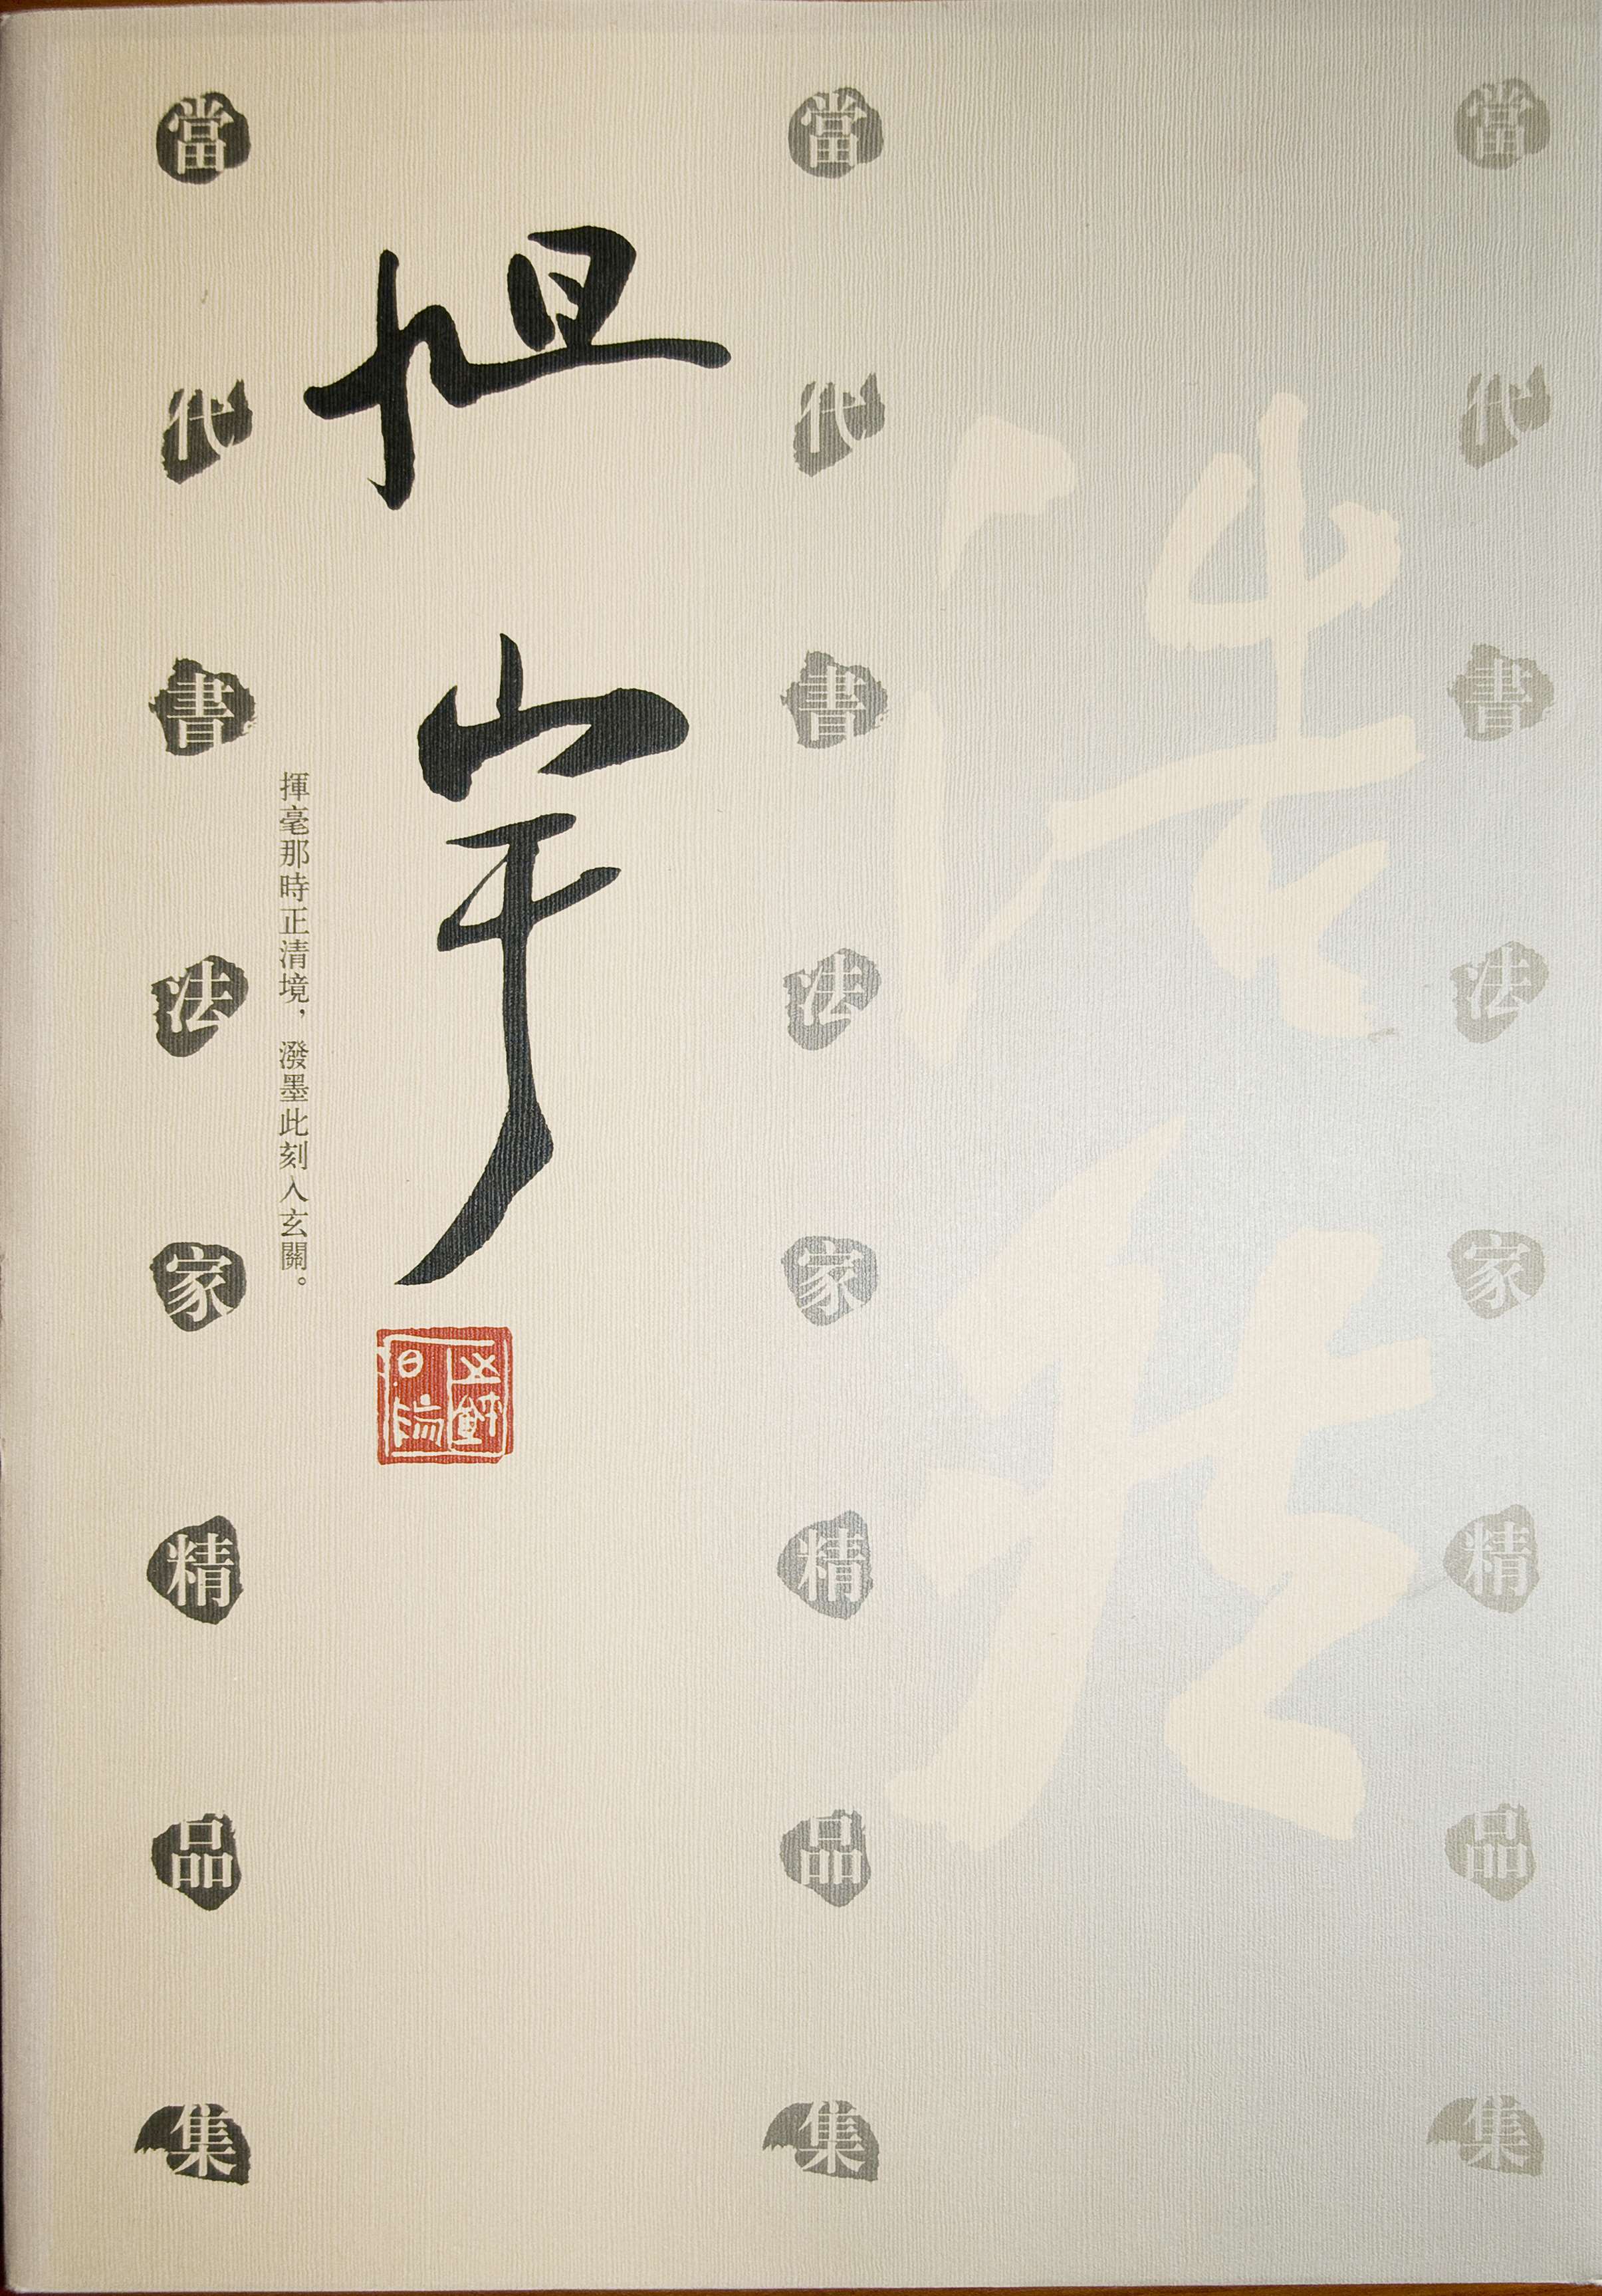 當代書法家精品集
浩然
當代書法家精品集
旭宇
揮毫那時正清境，潑墨此刻入玄關。
當代書法家精品集